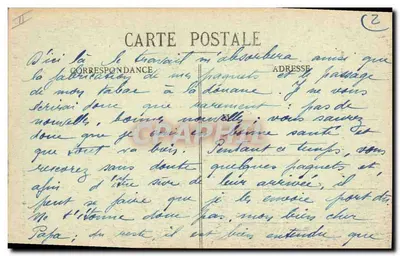 II
2
CARTE POSTALE
D'ici là le travail m'absorbera ainsi que
CORRESPONDANCE
ADRESSE
la fabrication de mes paquets et le passage
de mon tabac à la douane. Je ne vous
écrirai donc que rarement; pas de
nouvelles, bonnes nouvelles; vous saurez
donc que je suis en bonne santé et
que tout va bien. Pendant ce temps, vous
recevrez sans doute quelques paquets et
afin d'être sûr de leur arrivée, il
peut se faire que je les envoie port dû.
Ne t'étonne donc pas, mon bien cher
Papa; du reste il est bien entendu que